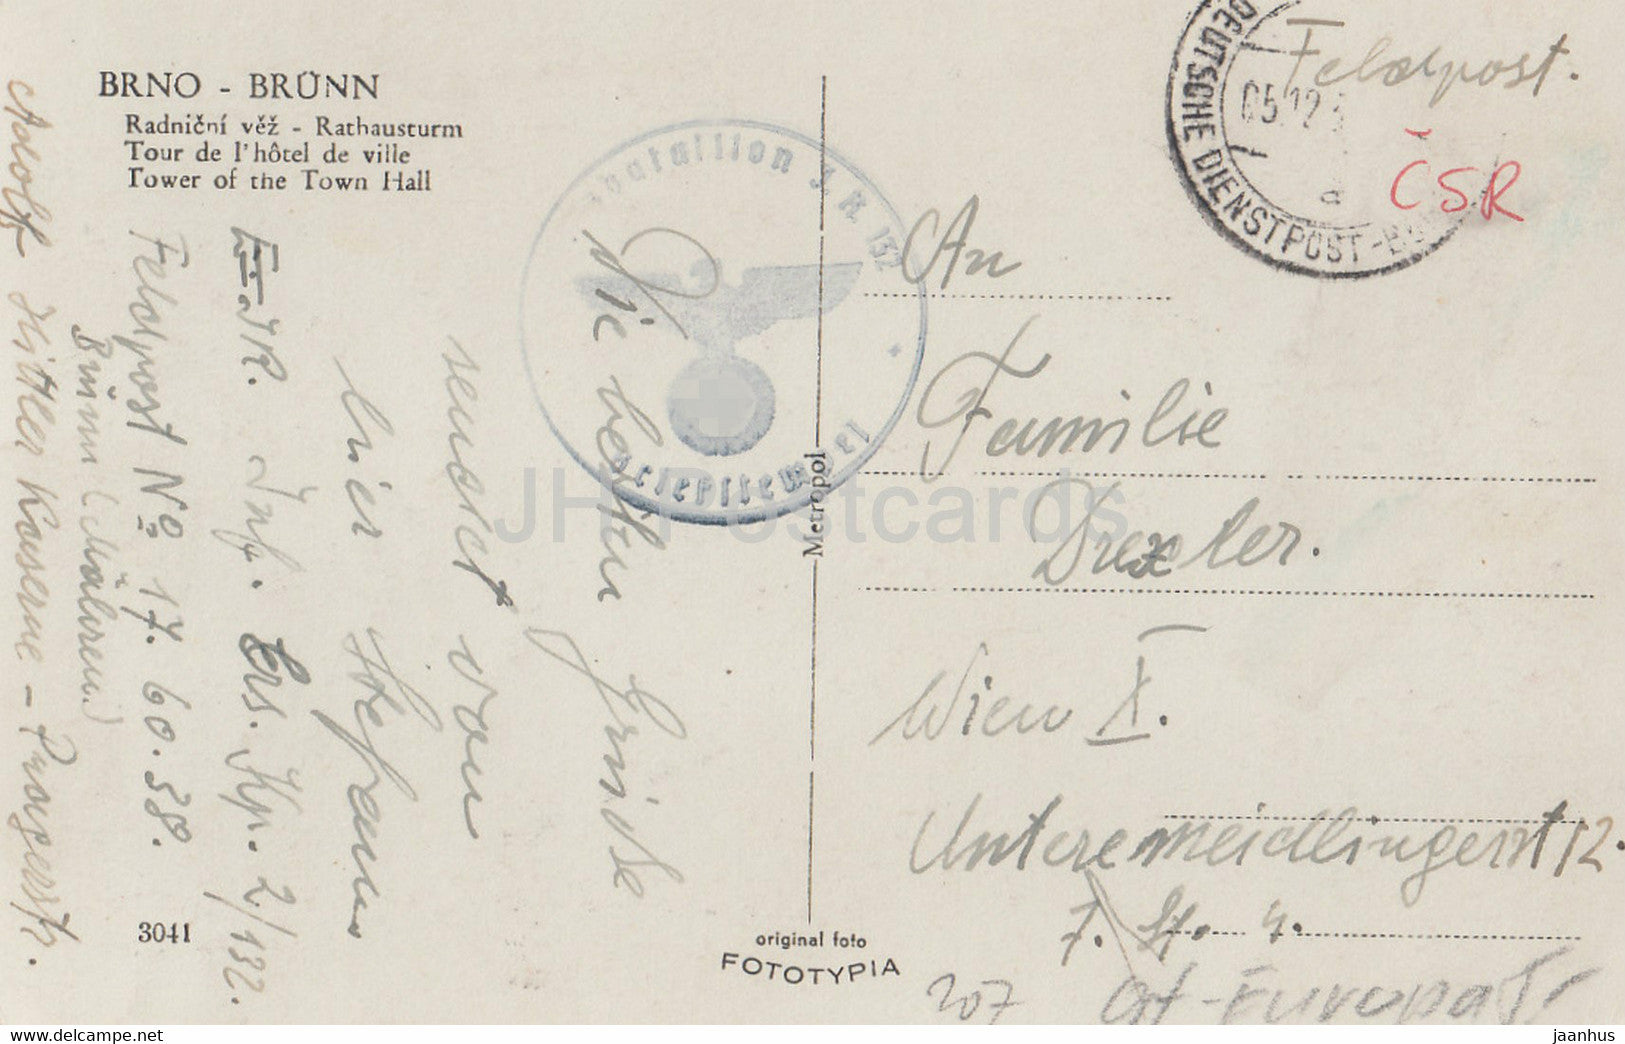 BRNO - BRÜNN
Radniční věž - Rathausturm
Tour de l'hôtel de ville
Tower of the Town Hall
Feldpost.
DEUTSCHE DIENSTPOST
05.12.
ČSR
bataillon J. R. 132
Briefstempel
An
Familie
Drexler.
Wien X.
Unteremeidlingerst 12.
7. St. 4.
Die besten Grüße
sendet von
hier Stefan
JR. Inf. Ers. Kp. 2/132.
Feldpost No 17.60.38.
Brünn (Mähren)
Adolf Hittler Kaserne - Pragerstr.
Metropol
JH Postcards
3041
original foto
FOTOTYPIA
207 Ost-Europa
www.delcampe.net
jaanhus